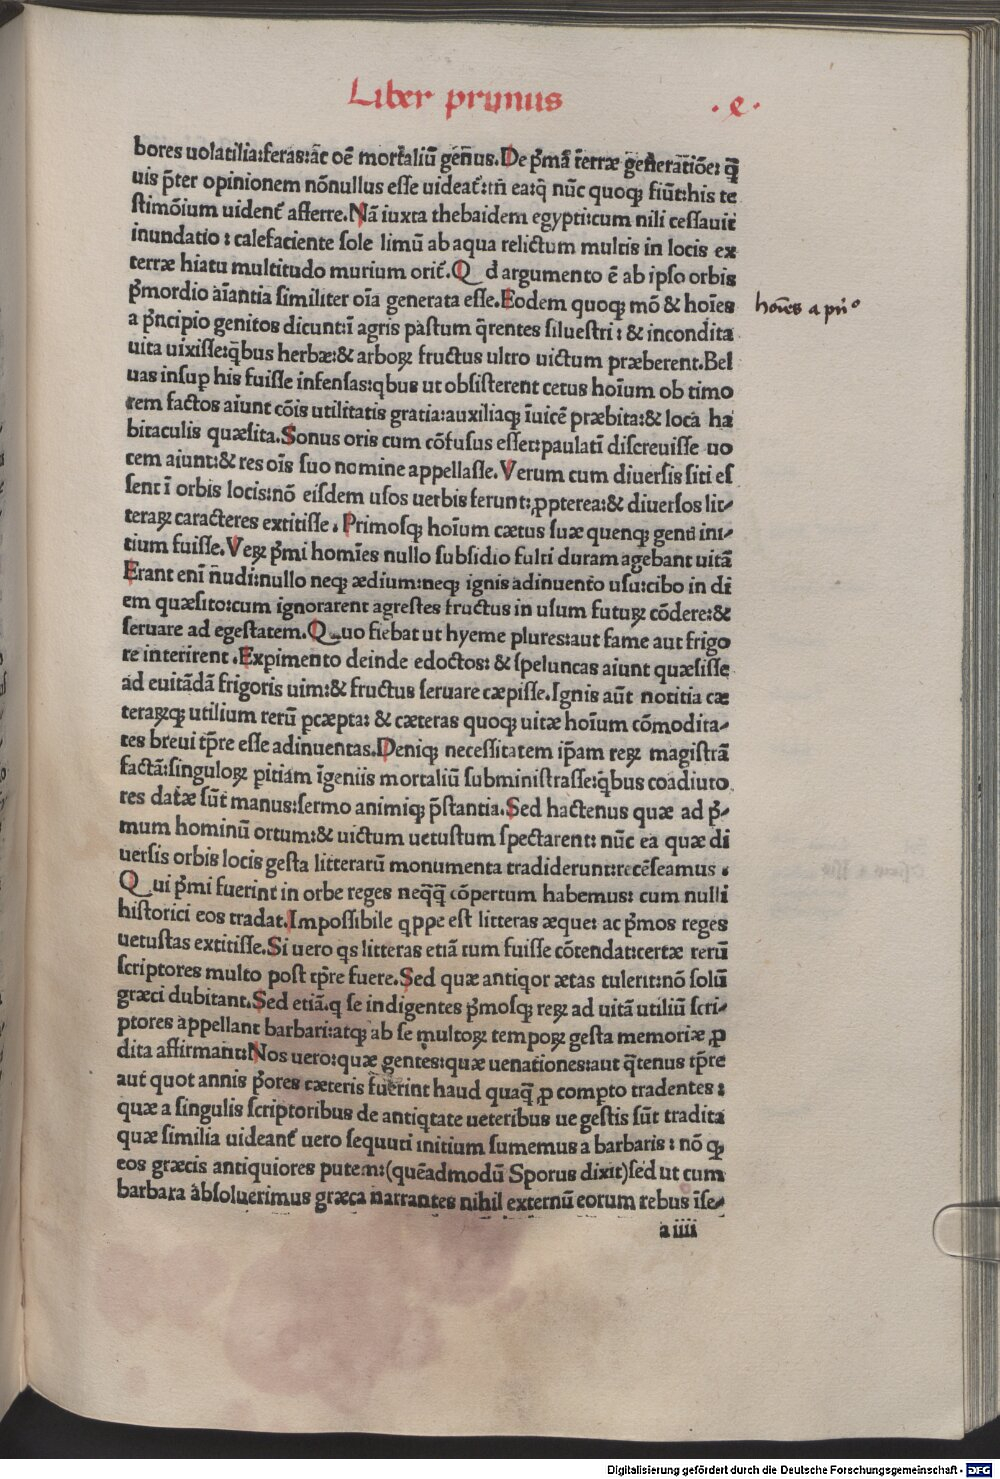 Liber primus
.e.
bores uolatilia:feras:ac̄ oē mortaliū gen̄us.De p̄mā terræ generatiōe: q̄
uis p̄ter opinionem nōnullus esse uideat᷑:tn̄ ea:q̄ nūc quoqꝫ fiūt:his te
stimōium uident᷑ afferre.Nā iuxta thebaidem egypti:cum nili cessauit
inundatio : calefaciente sole limū ab aqua relictum multis in locis ex
terræ hiatu multitudo murium orit᷑.Qd argumento ē ab ipso orbis
p̄mordio aīantia similiter oīa generata esse.Eodem quoqꝫ mō & hoīes
a p̄ncipio genitos dicunt:ī agris pastum q̄rentes siluestri : & incondita
uita uixisse:q̄bus herbæ:& arboꝝ fructus ultro uictum præberent.Bel
uas insuꝑ his fuisse infensas:qbus ut obsisterent cetus hoīum ob timo
rem factos aiunt cōis utilitatis gratia:auxiliaqꝫ īuicē præbita:& loca ha
bitaculis quæsita.Sonus oris cum cōfusus esset:paulatī discreuisse uo
cem aiunt:& res oīs suo nomine appellasse.Verum cum diuersis siti es
sent ī orbis locis:nō eisdem usos uerbis ferunt:ꝓpterea:& diuersos lit-
teraꝝ caracteres extitisse . Primosqꝫ hoīum cætus suæ quenqꝫ genti ini-
tium fuisse.Veꝝ p̄mi homīes nullo subsidio fulti duram agebant uitā
Erant enī nudi:nullo neqꝫ ædium:neqꝫ ignis adinuento usu:cibo in di
em quæsito:cum ignorarent agrestes fructus in usum futuꝝ cōdere:&
seruare ad egestatem.Quo fiebat ut hyeme plures:aut fame aut frigo
re interirent .Exꝑimento deinde edoctos: & speluncas aiunt quæsisse
ad euitādā frigoris uim:& fructus seruare cæpisse.Ignis aūt notitia cæ
teraꝝqꝫ utilium rerū ꝑcæpta: & cæteras quoqꝫ uitæ hoīum cōmodita-
tes breui tp̄re esse adinuentas.Deniqꝫ necessitatem ip̄am reꝝ magistrā
factā:singuloꝝ ꝑitiam īgeniis mortaliū subministrasse:q̄bus coadiuto
res datæ sūt manus:sermo animiqꝫ p̄stantia.Sed hactenus quæ ad p̄-
mum hominū ortum:& uictum uetustum spectarent: nūc ea quæ di
uersis orbis locis gesta litterarū monumenta tradiderunt:recēseamus .
Qui p̄mi fuerint in orbe reges neq̄q̄ cōpertum habemus: cum nulli
historici eos tradat.Impossibile qppe est litteras æque: ac p̄mos reges
uetustas extitisse.Si uero qs litteras etiā tum fuisse cōtendat:certæ rerū
scriptores multo post tp̄re fuere.Sed quæ antiqor ætas tulerit:nō solū
græci dubitant.Sed etiā.q se indigentes p̄mosqꝫ reꝝ ad uitā utiliū scri-
ptores appellant barbari:atqꝫ ab se multoꝝ tempoꝝ gesta memoriæ ꝓ
dita affirmant:Nos uero:quæ gentes:quæ uenationes:aut q̄tenus tp̄re
aut quot annis p̄ores cæteris fuerint haud quaq̄ ꝓ compto tradentes :
quæ a singulis scriptoribus de antiqtate ueteribus ue gestis sūt tradita
quæ similia uideant᷑ uero sequuti initium sumemus a barbaris : nō qꝫ
eos græcis antiquiores putem:(quēadmodū Sporus dixit)sed ut cum
barbara absoluerimus græca narrantes nihil externū eorum rebus īse-
a iiii
hoīes a prīo
Digitalisierung gefördert durch die Deutsche Forschungsgemeinschaft - DFG